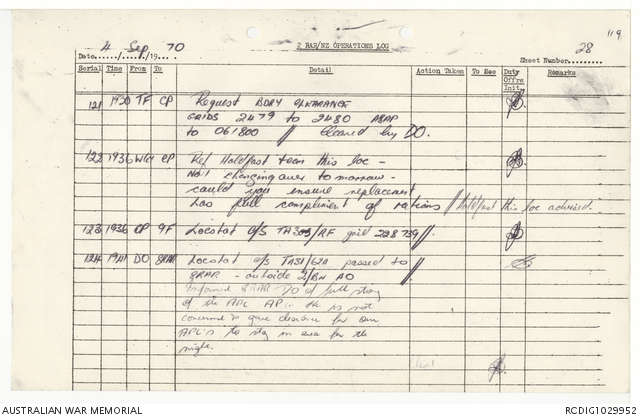 119
2 RAR/NZ OPERATIONS LOG
Date 4 / Sep / 19 70
28
Sheet Number
Serial Time From To Detail Action Taken To See Duty Offrs Init. Remarks
121 1930 TF CP Request BDRY CLEARANCE
GRIDS 2479 to 2480 ASAP
to 061800 // Cleared by DO.
122 1936 CP Ref Holdfast team this loc -
No.1 changing over to morrow -
could you ensure replacement
has full compliment of rations // Holdfast this loc advised.
123 1936 CP 9F Locstat o/s /RF grid 228739 //.
124 1941 DO 8RAR Locstat o/s passed to
8RAR - outside 2/Bn AO //.
Informed 8RAR DO of full story
of the APC AP. He is not
concerned to give clearance for our
APC's to stay in area for the
night.
AUSTRALIAN WAR MEMORIAL
RCDIG1029952